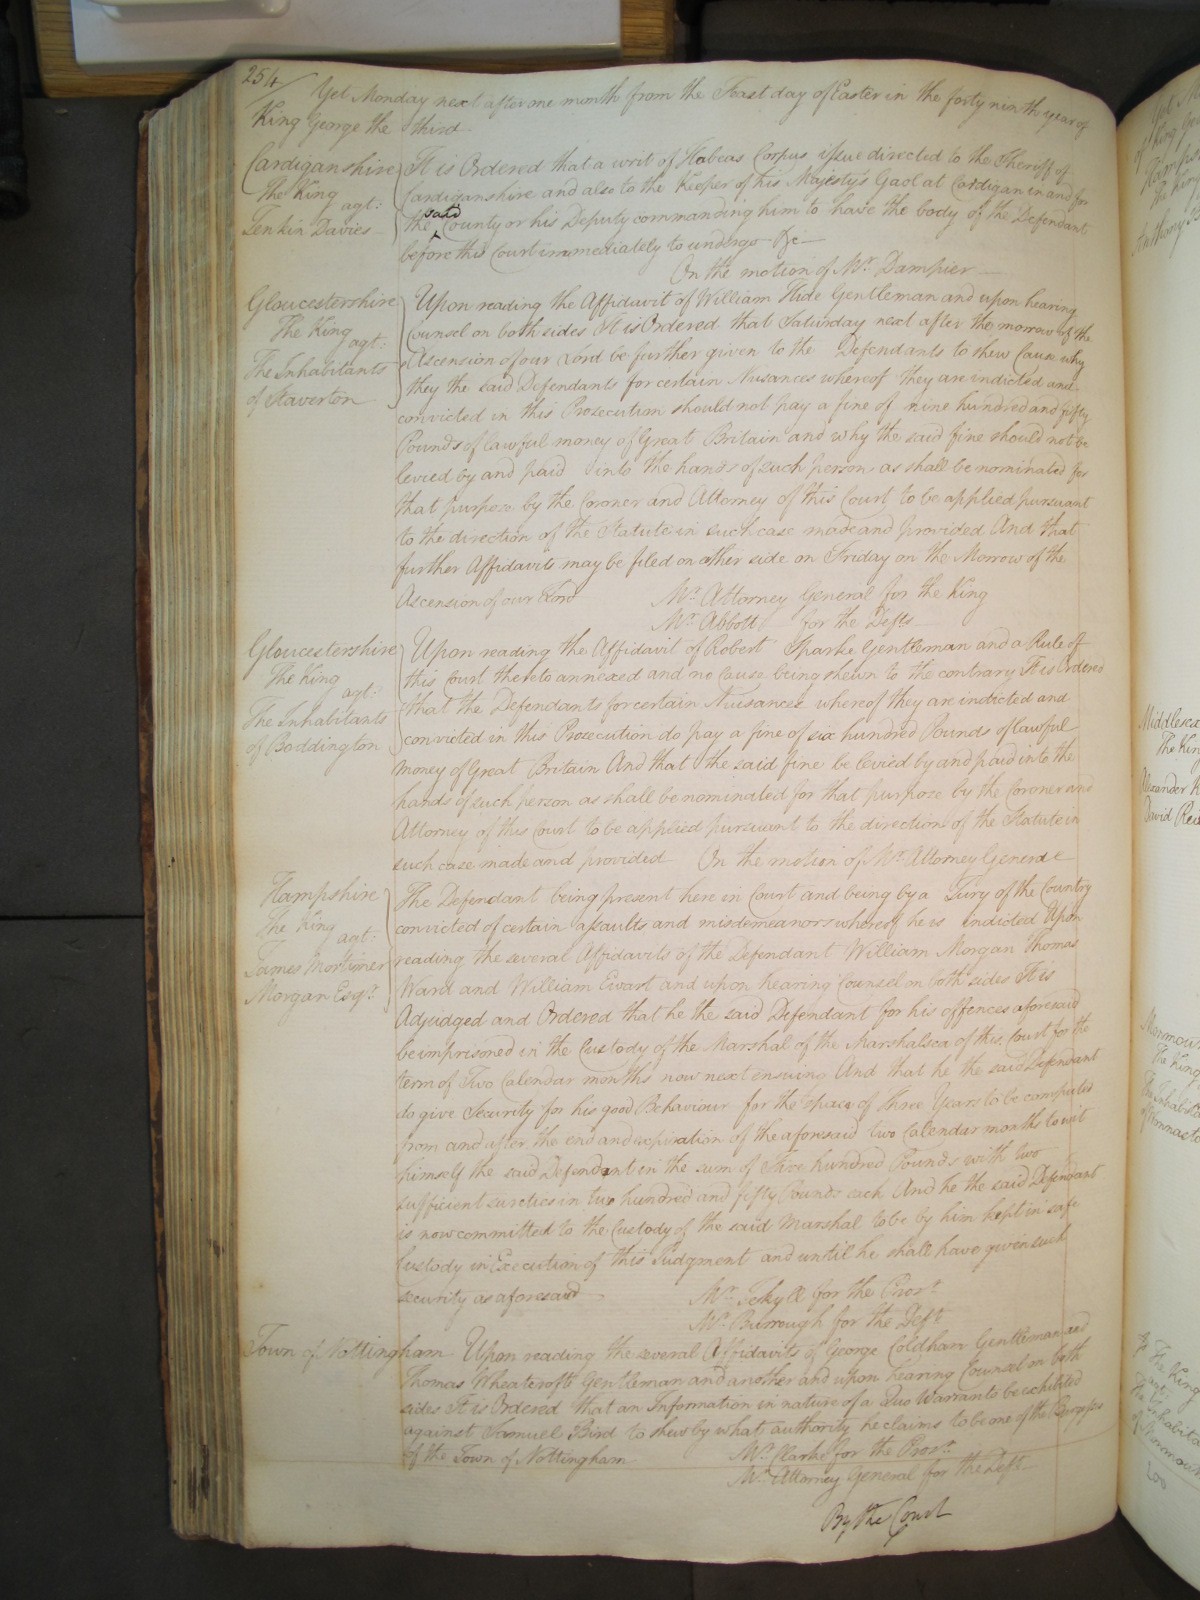 254
Yet Monday next after one month from the Feast day of Easter in the forty ninth year of
King George the third.
Cardiganshire
The King
agt:
Jenkin Davies
It is Ordered that a writ of Habeas Corpus issue directed to the Sheriff of
Cardiganshire and also to the Keeper of his Majesty's Gaol at Cardigan in and for
the said County or his Deputy commanding him to have the body of the Defendant
before this Court immediately to undergo &c
On the motion of Mr. Dampier
Gloucestershire
The King
agt:
The Inhabitants
of Staverton
Upon reading the Affidavit of William Hide Gentleman and upon hearing
Counsel on both sides It is Ordered that Saturday next after the morrow of the
Ascension of our Lord be further given to the Defendants to shew Cause why
they the said Defendants for certain Nusances whereof they are indicted and
convicted in this Prosecution should not pay a fine of nine hundred and fifty
Pounds of lawful money of Great Britain and why the said fine should not be
levied by and paid into the hands of such person as shall be nominated for
that purpose by the Coroner and Attorney of this Court to be applied pursuant
to the direction of the Statute in such case made and provided And that
further Affidavits may be filed on other side on Friday on the Morrow of the
Ascension of our Lord
Mr. Attorney General for the King
Mr. Abbott for the Defts
Gloucestershire
The King
agt:
The Inhabitants
of Boddington
Upon reading the Affidavit of Robert Sparke Gentleman and a Rule of
this Court thereto annexed and no Cause being shewn to the contrary It is Ordered
that the Defendants for certain Nuisances whereof they are indicted and
convicted in this Prosecution do pay a fine of six hundred Pounds of lawful
money of Great Britain And that the said fine be levied by and paid into the
hands of such person as shall be nominated for that purpose by the Coroner and
Attorney of this Court to be applied pursuant to the direction of the Statute in
such case made and provided On the motion of Mr. Attorney General
Hampshire
The King
agt:
James Mortimer
Morgan Esqr.
The Defendant being present here in Court and being by a Jury of the Country
convicted of certain assaults and misdemeanors whereof he is indicted Upon
reading the several Affidavits of the Defendant William Morgan Thomas
Ward and William Ewart and upon hearing Counsel on both sides It is
Adjudged and Ordered that he the said Defendant for his offences aforesaid
be imprisoned in the Custody of the Marshal of the Marshalsea of this Court for the
term of Two Calendar months now next ensuing And that he the said Defendant
do give Security for his good Behaviour for the space of Three Years to be computed
from and after the end and expiration of the aforesaid two Calendar months to wit
himself the said Defendant in the sum of Five hundred Pounds with two
sufficient sureties in two hundred and fifty Pounds each And he the said Defendant
is now committed to the Custody of the said Marshal to be by him kept in safe
Custody in Execution of this Judgment and until he shall have given such
security as aforesaid
Mr. Jekyll for the Prosr.
Mr. Burrough for the Deft
Town of Nottingham Upon reading the several Affidavits of George Coldham Gentleman and
Thomas Wheatcroft Gentleman and another and upon hearing Counsel on both
sides It is Ordered that an Information in nature of a Quo Warranto be exhibited
against Samuel Bird to shew by what authority he claims to be one of the Burgesses
of the Town of Nottingham
Mr. Clarke for the Prosr.
Mr. Attorney General for the Deft
By the Court
Middlesex
The King
Alexander
David
The King
The King